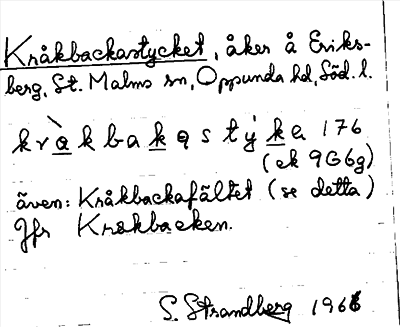 Kråkbackastycket, åker å Eriks-
berg, St. Malms sn, Oppunda hd, Söd. l.
kràkbakastýkə 176
(ek 9G6g)
även: Kråkbackafältet (se detta)
Jfr Kråkbacken.
S. Strandberg 1966